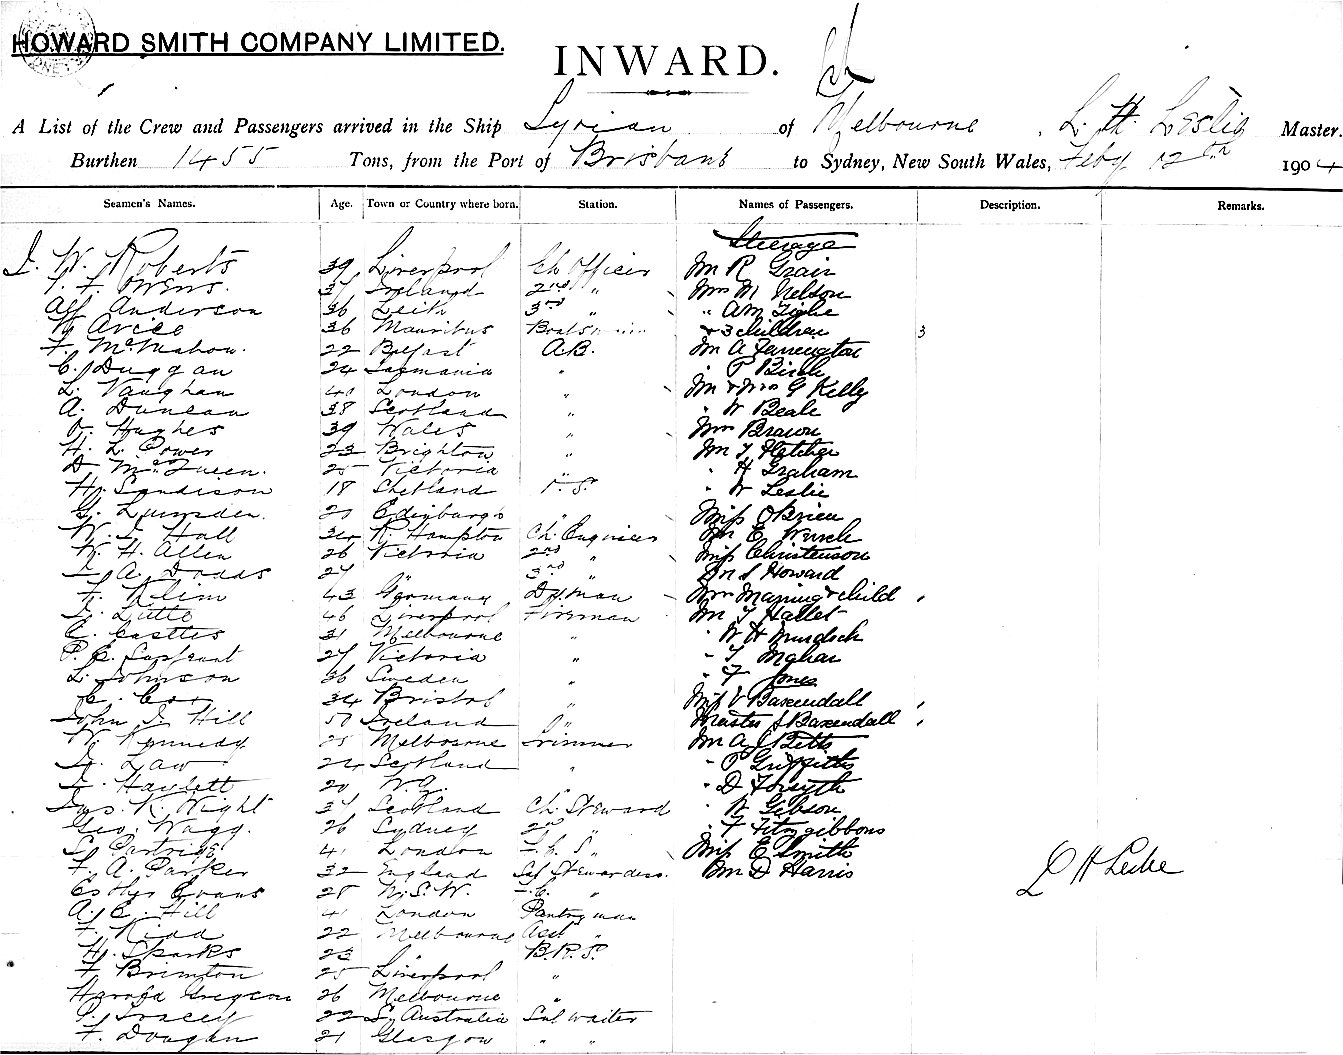 HOWARD SMITH COMPANY LIMITED.
INWARD.
A List of the Crew and Passengers arrived in the Ship Syrian of Melbourne, L. H. Leslie Master.
Burthen 1455 Tons, from the Port of Brisbane to Sydney, New South Wales, Feby 12th 1904
Seamen's Names. Age. Town or Country where born. Station. Names of Passengers. Description. Remarks.
Steerage
J. W. Roberts 39 Liverpool Ch Officer Mr R Grair
F. Owens. 37 Ireland 2nd " Mrs M Nelson
Alf Anderson 36 Leith 3rd " " A M Tighe
36 Mauritius Boatswain + 3 children 3
F. McMahon. 22 Belfast A.B. Mr A Farrington
C. Duggan 24 Tasmania " " P Birch
L. Vaughan 40 London " Mr & Mrs G Kelly
A. Duncan 38 Scotland " " W Beale
O. Hughes 39 Wales " Mrs Brown
H. L. Power 23 Brighton " Mr T Fletcher
D. McQueen. 25 Victoria " " H Graham
H. Sandison 18 Shetland O.S. " W Leslie
G. Lumsden. 20 Edinburgh " Miss OBrien
W. J. Hall 34 N. Hampton Ch. Engineer Mr E Wusch
W. H. Allen 26 Victoria 2nd " Miss Christenson
A. Dodds 27 " 3rd " Mr S Howard
F. Klim 43 Germany Dyman Mrs Maning & Child
J. Tutte 46 Liverpool Fireman Mr T Hallet
C. Castles 31 Melbourne " " W H Murdoch
P. C. Sargeant 27 Victoria " " T Mahar
L. Johnson 36 Sweden " " F Jones
C. Cox 34 Bristol " Miss V Baxendall
John J. Hill 50 Ireland " Master S Baxendall
W. Kennedy 25 Melbourne Trimmer Mr A J Betts
J. Law 24 Scotland " " P Griffiths
J. Haylett 20 " D Forsyth
Jas. K. Wight 37 Scotland Ch. Steward " W Gibson
Geo. Wagg. 26 Sydney 2nd " " F Fitzgibbons
S. Partridge 41 London F.C.S. " Miss E Smith
F. A. Parker 32 England Sal Stewardess. Mr D Harris
L H Leslie
Esther Evans 28 N.S.W. F.C. "
A. C. Hill 41 London Pantryman
F. Kidd 22 Melbourne Asst "
H. Sparks 23 " B.R.S.
F. Brimton 25 Liverpool "
Harold Gregson 26 Melbourne "
P. Tracey 22 S. Australia Sal waiter
F. Dougan 21 Glasgow " "